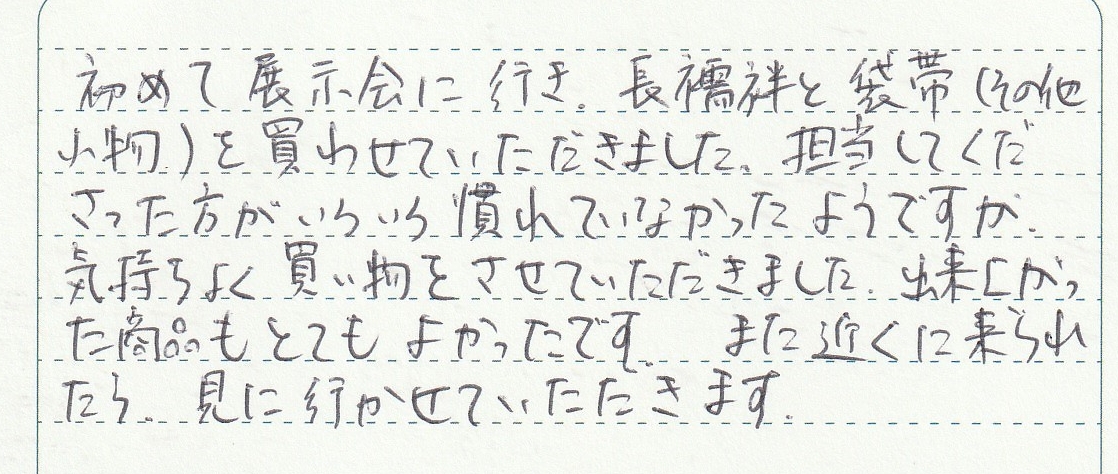 初めて展示会に行き、長襦袢と袋帯(その他
小物)を買わせていただきました。担当してくだ
さった方がいろいろ慣れていなかったようですが、
気持ちよく買い物をさせていただきました。出来上がっ
た商品もとてもよかったです。 また近くに来られ
たら、見に行かせていただきます。